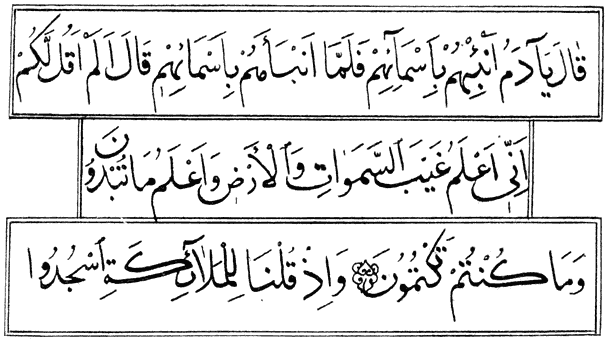 قَالَ يَآ اٰدَمُ اَنْبِئْهُمْ بِاَسْمَآئِهِمْ فَلَمَّا اَنْبَأَهُمْ بِاَسْمَائِهِمْ قَالَ اَلَمْ اَقُلْ لَكُمْ
اِنِّى اَعْلَمُ غَيْبَ السَّمَوَاتِ وَالْاَرْضِ وَاَعْلَمُ مَا تُبْدُونَ
وَمَا كُنْتُمْ تَكْتُمُونَ وَاِذْ قُلْنَا لِلْمَلَآئِكَةِ اسْجُدُوا